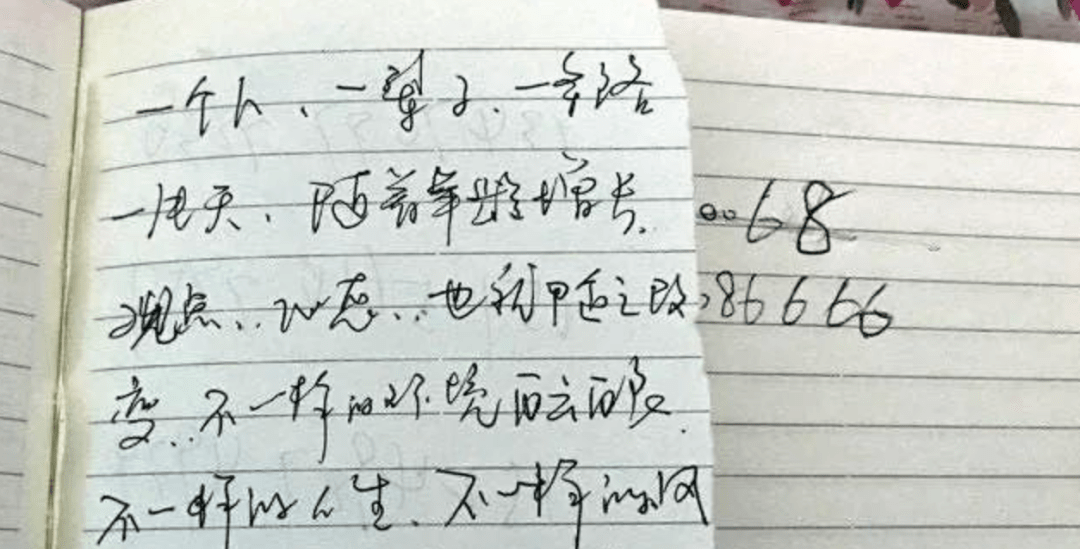 一个人、一辈子、一条路
一片天、随着年龄增长. 0068
观点、、心态、、也利之改 86666
变、、不一样的环境
不一样的人生、不一样的风